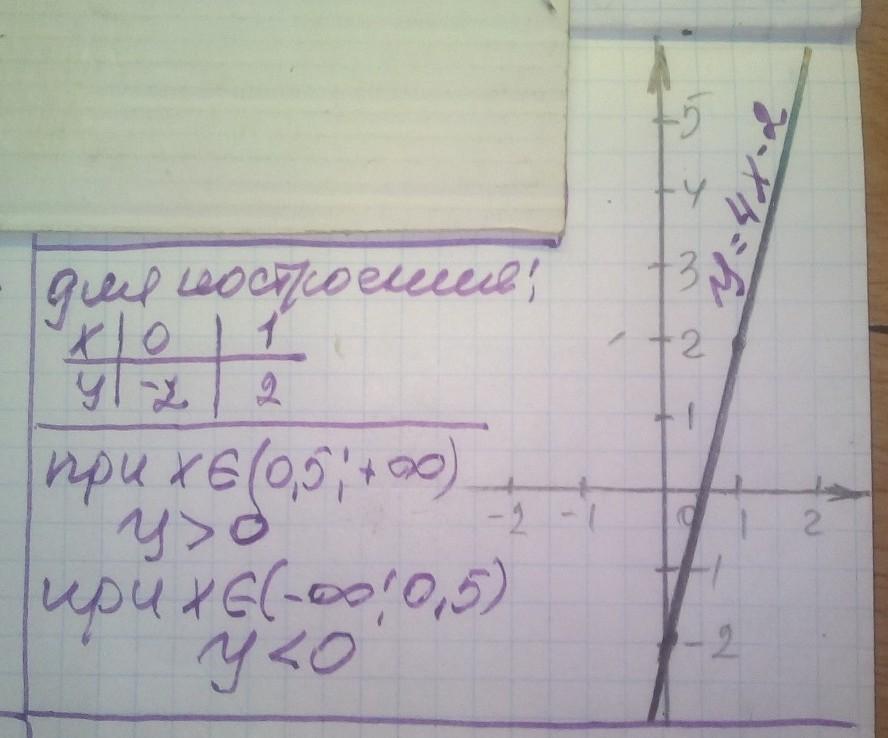 для построения:
x | 0 | 1
y | -2 | 2
при x∈(0,5;+∞)
y>0
при x∈(-∞;0,5)
y<0
y=4x-2
5
4
3
2
1
-2 -1 0 1 2
-1
-2